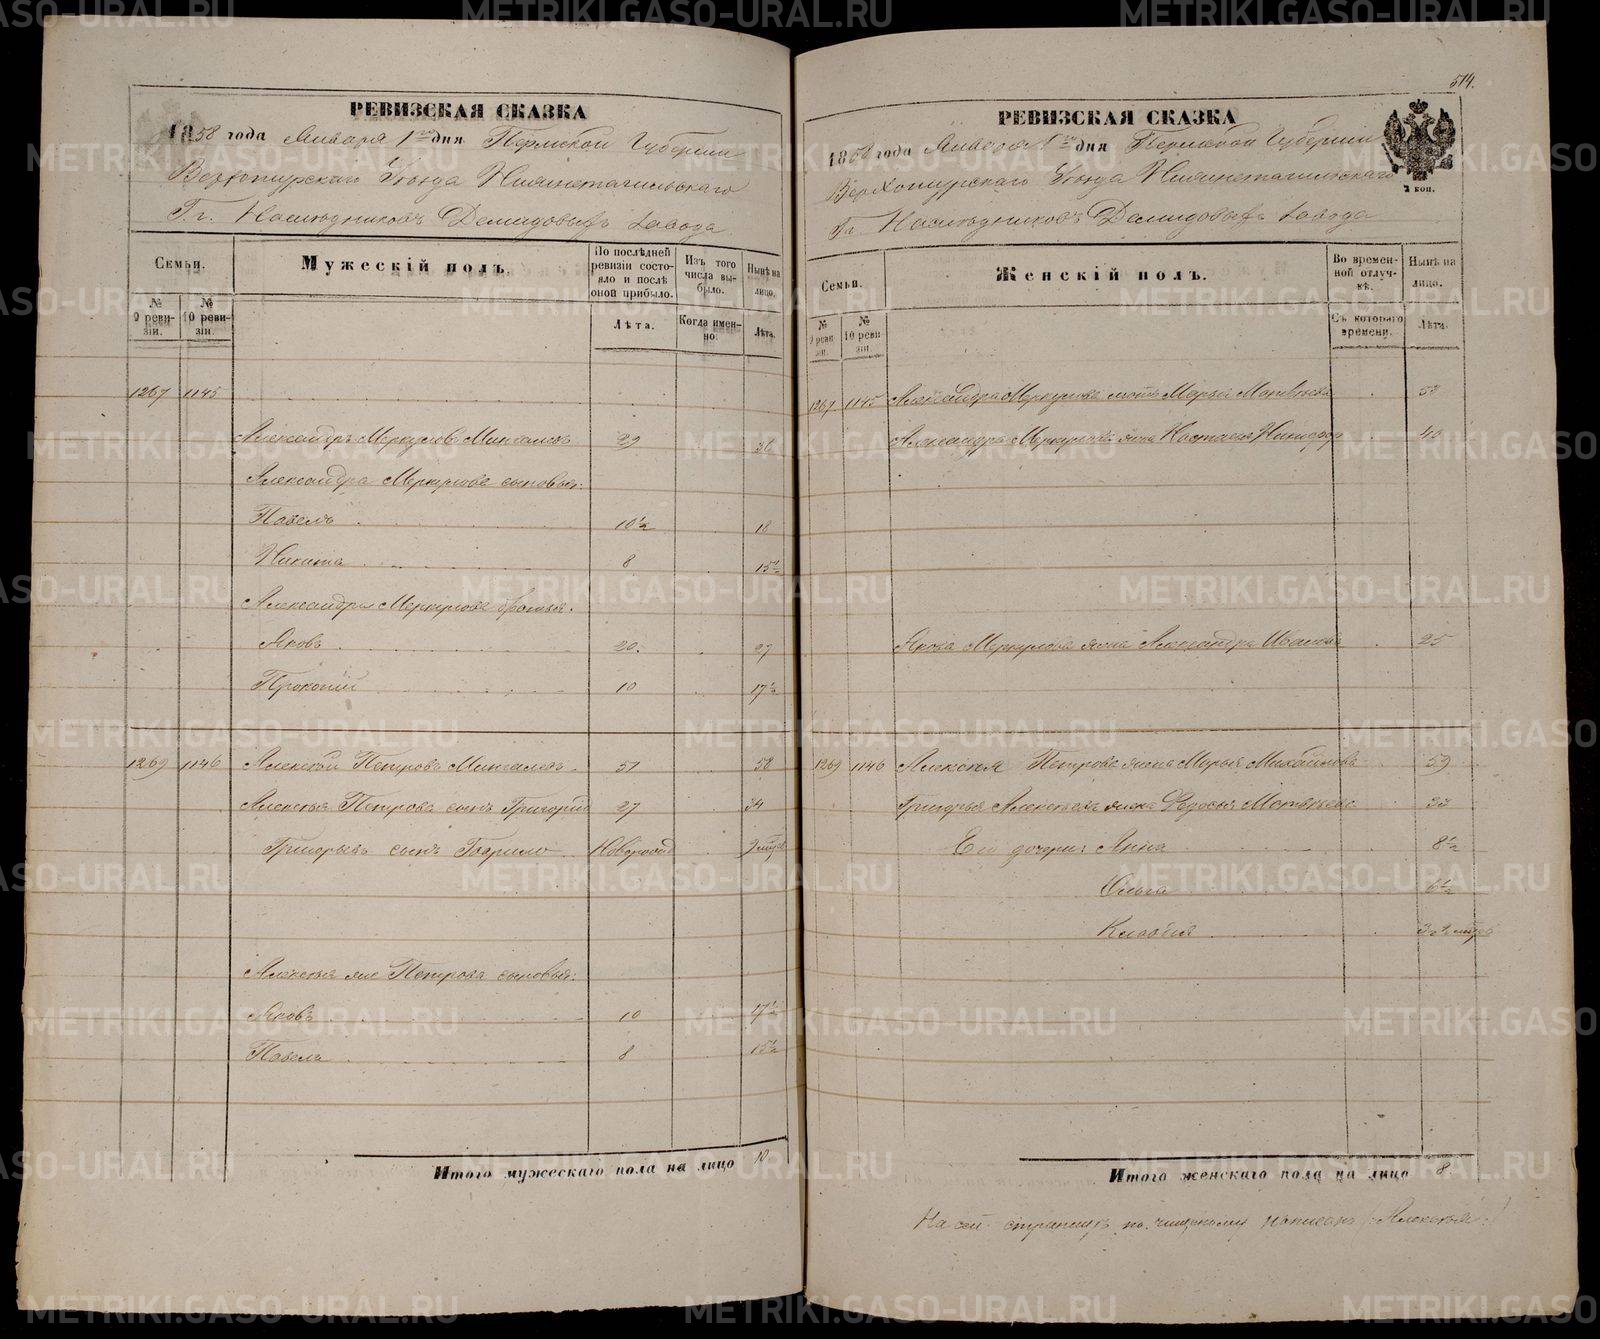 514.
РЕВИЗСКАЯ СКАЗКА
1858 года Января 1го дня Пермской Губернии
Верхотурскаго Уѣзда Нижнетагильскаго
Гг. Наслѣдниковъ Демидовыхъ завода
Семьи.
Мужескій полъ.
По послѣдней ревизіи состояло и послѣ оной прибыло.
Изъ того числа выбыло.
Нынѣ на лицо.
№ 9 ревизіи.
№ 10 ревизіи.
Лѣта.
Когда именно.
Лѣта.
1267 1145
Александръ Меркуловъ 29 36
Александра Меркулова сыновья:
Павелъ 10½ 18
Никита 8 15½
Александра Меркулова братья:
Яковъ 20. 27
Прокопій 10 17½
1269 1146 Алексѣй Петровъ 51 58
Алексѣя Петрова сынъ Григорій 27 34
Григорьевъ сынъ Гаврило Новорожд
Алексѣя же Петрова сыновья:
Яковъ 10 17½
Павелъ 8 15½
Итого мужескаго пола на лицо 10
РЕВИЗСКАЯ СКАЗКА
1858 года Января 1го дня Пермской Губерніи
Верхотурскаго Уѣзда Нижнетагильскаго
Гг. Наслѣдниковъ Демидовыхъ завода
2 коп.
Семьи.
Женскій полъ.
Во временной отлучкѣ.
Нынѣ на лицо.
№ 9 ревизіи.
№ 10 ревизіи.
Съ котораго времени.
Лѣта.
1267 1145 Александра Меркулова мать Марья Матвѣева 53
Александра Меркулова жена Настасья Никифор 40
Якова Меркулова жена Александра Иванова 25
1269 1146 Алексѣя Петрова жена Марья Михайлова 59
Григорья Алексѣева жена Федосья Матвѣева 33
Его дочери: Анна 8½
Ольга 6½
Клавдія
Итого женскаго пола на лицо 8.
На сей страницѣ по чищеному написано: Алексѣя
METRIKI.GASO-URAL.RU